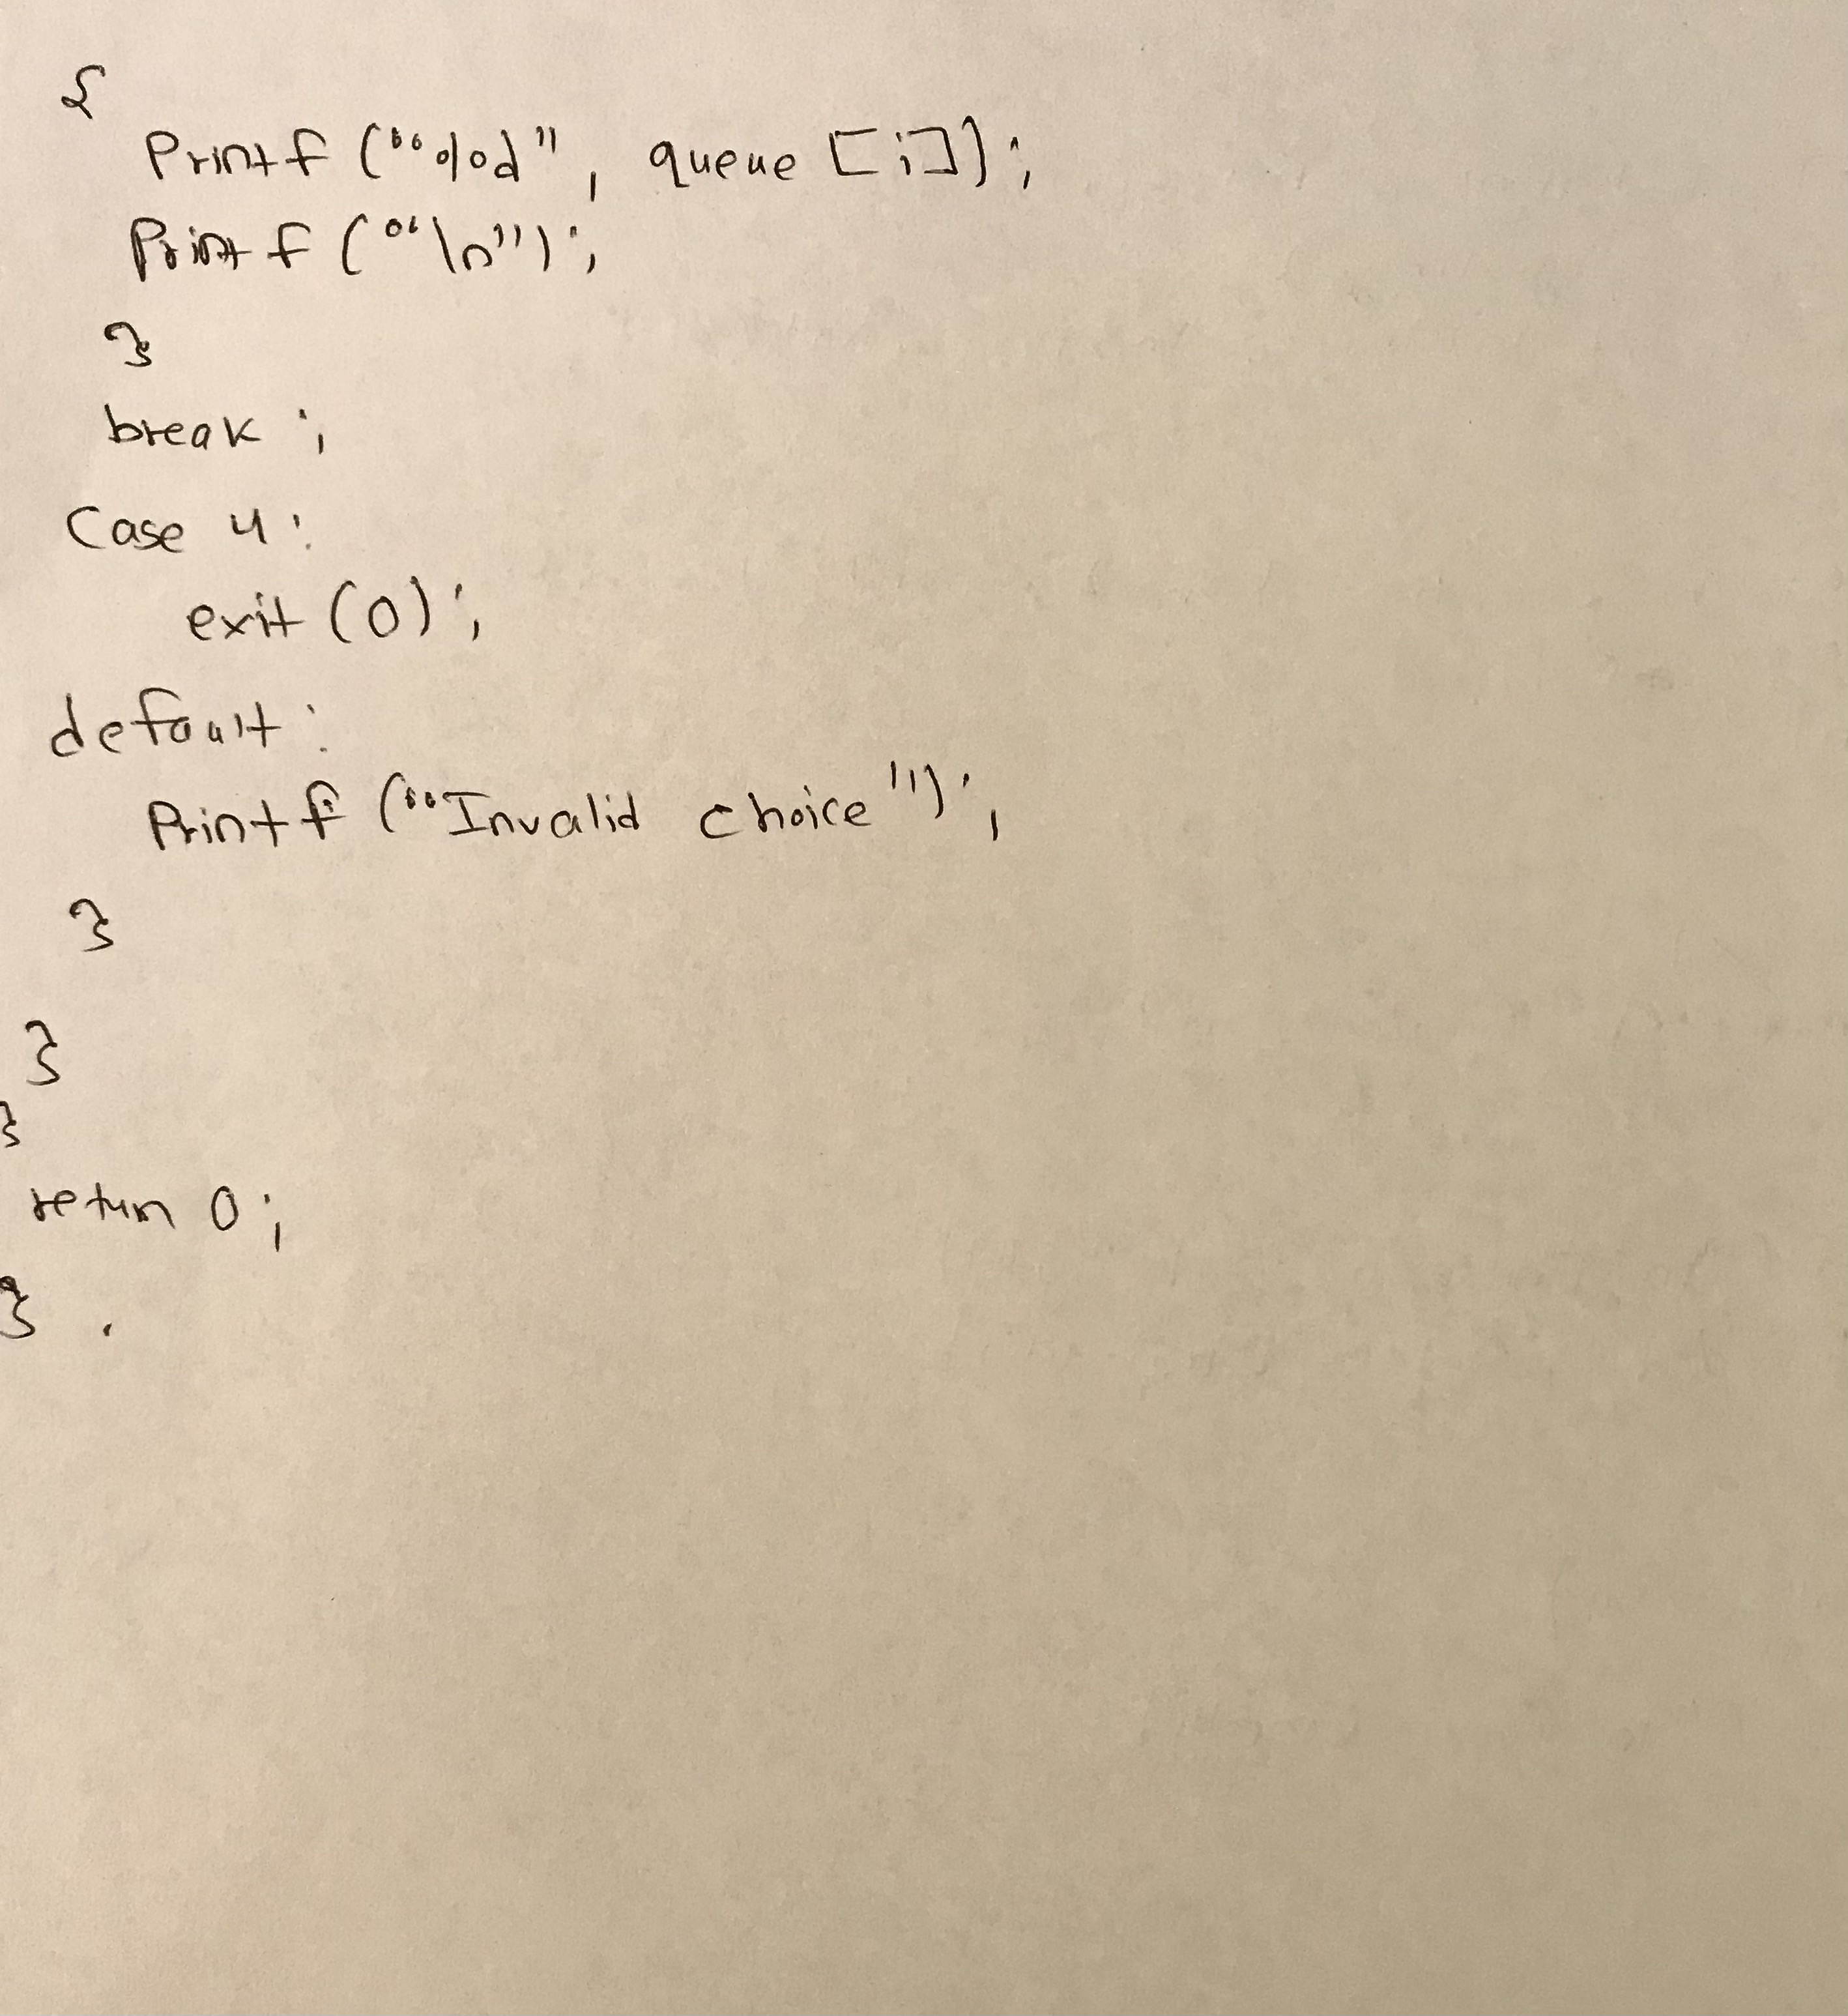 {
Printf ("%d", queue [i]);
Printf ("\n");
}
break ;
Case 4:
exit (0);
default:
Printf ("Invalid choice");
}
}
}
return 0;
} .